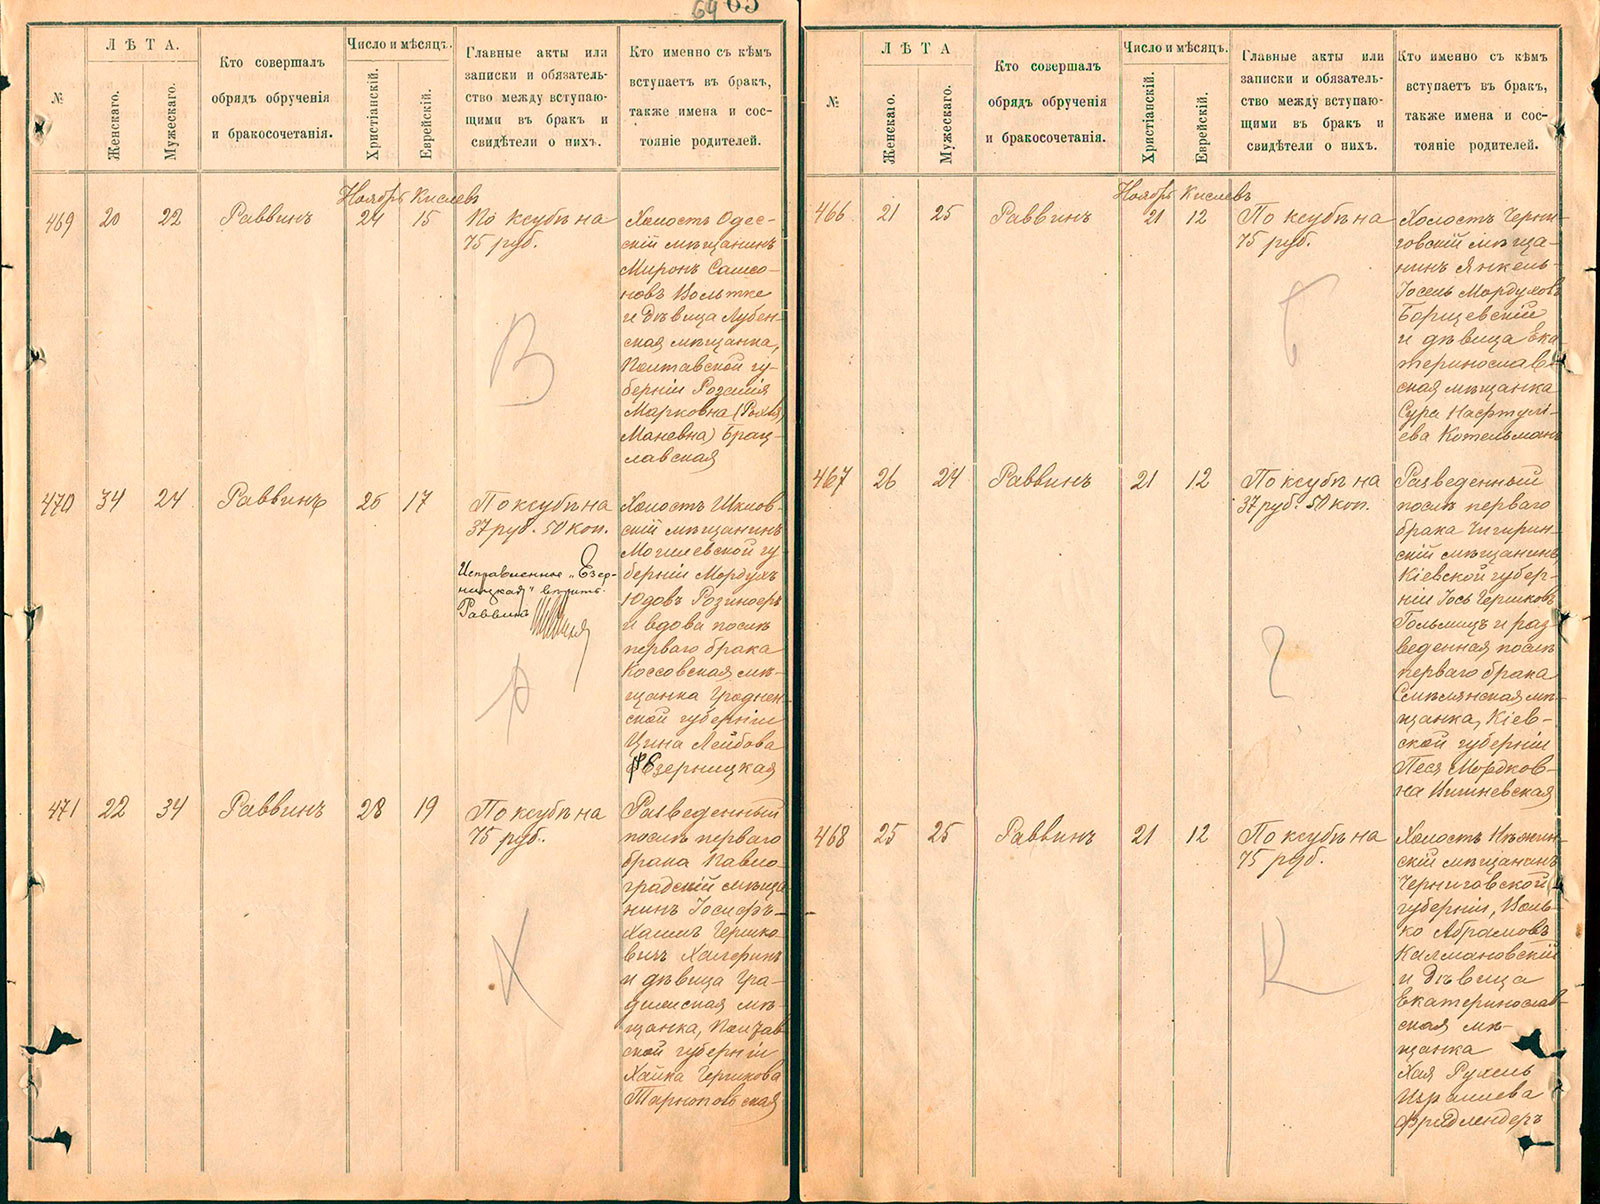 69 65
ЛѢТА.
№
Женскаго.
Мужескаго.
Кто совершалъ
обрядъ обрученія
и бракосочетанія.
Число и мѣсяцъ.
Христіанскій.
Еврейскій.
Главные акты или
записки и обязатель-
ство между вступаю-
щими въ бракъ и
свидѣтели о нихъ.
Кто именно съ кѣмъ
вступаетъ въ бракъ,
также имена и сос-
тояніе родителей.
Ноябрь Кислевъ
469 20 22 Раввинъ 24 15
По ксубѣ на
75 руб.
Холостъ Одес-
скій мѣщанинъ
Миронъ Самсо-
новъ Вольтке
и дѣвица Лубен-
ская мѣщанка,
Полтавской гу-
берніи Розалія
Марковна (Рохля
Маневна) Брац-
лавская
В
470 34 24 Раввинъ 26 17
По ксубѣ на
37 руб. 50 коп.
Исправленное „Езер-
ницкая" вѣрить.
Раввинъ
Холостъ Шклов-
скій мѣщанинъ
Могилевской гу-
берніи Мордухъ
Юдовъ Розиноеръ
и вдова послѣ
перваго брака
Коссовская мѣ-
щанка Гроднен-
ской губерніи
Цина Лейбова
Езерницкая
Р
471 22 34 Раввинъ 28 19
По ксубѣ на
75 руб.
Разведенный
послѣ перваго
брака Павло-
градскій мѣща-
нинъ Іосифъ-
Хаимъ Гершко-
вичъ Халфинъ
и дѣвица Гра-
дижская мѣ-
щанка, Полтав-
ской губерніи
Хайка Гершкова
Тарнопольская
Х
ЛѢТА
№
Женскаго.
Мужескаго.
Кто совершалъ
обрядъ обрученія
и бракосочетанія.
Число и мѣсяцъ.
Христіанскій.
Еврейскій.
Главные акты или
записки и обязатель-
ство между вступаю-
щими въ бракъ и
свидѣтели о нихъ.
Кто именно съ кѣмъ
вступаетъ въ бракъ,
также имена и сос-
тояніе родителей.
Ноябрь Кислевъ
466 21 25 Раввинъ 21 12
По ксубѣ на
75 руб.
Холостъ Черни-
говскій мѣща-
нинъ Янкель-
Іосель Мордуховъ
Борщевскій
и дѣвица Ека-
теринослав-
ская мѣщанка
Сура Нафтулі-
ева Котельманъ
Б
467 26 24 Раввинъ 21 12
По ксубѣ на
37 руб. 50 коп.
Разведенный
послѣ перваго
брака Чигирин-
скій мѣщанинъ
Кіевской губер-
ніи Іось Гершковъ
Гольмицъ и раз-
веденная послѣ
перваго брака
Смѣлянская мѣ-
щанка, Кіев-
ской губерніи
Песя Мордков-
на Вишневская
468 25 25 Раввинъ 21 12
По ксубѣ на
75 руб.
Холостъ Нѣжин-
скій мѣщанинъ
Черниговской
губерніи, Воль-
ко Абрамовъ
Калмановскій
и дѣвица
Екатеринослав-
ская мѣ-
щанка
Хая Рухель
Израилева
Фридлендеръ
К